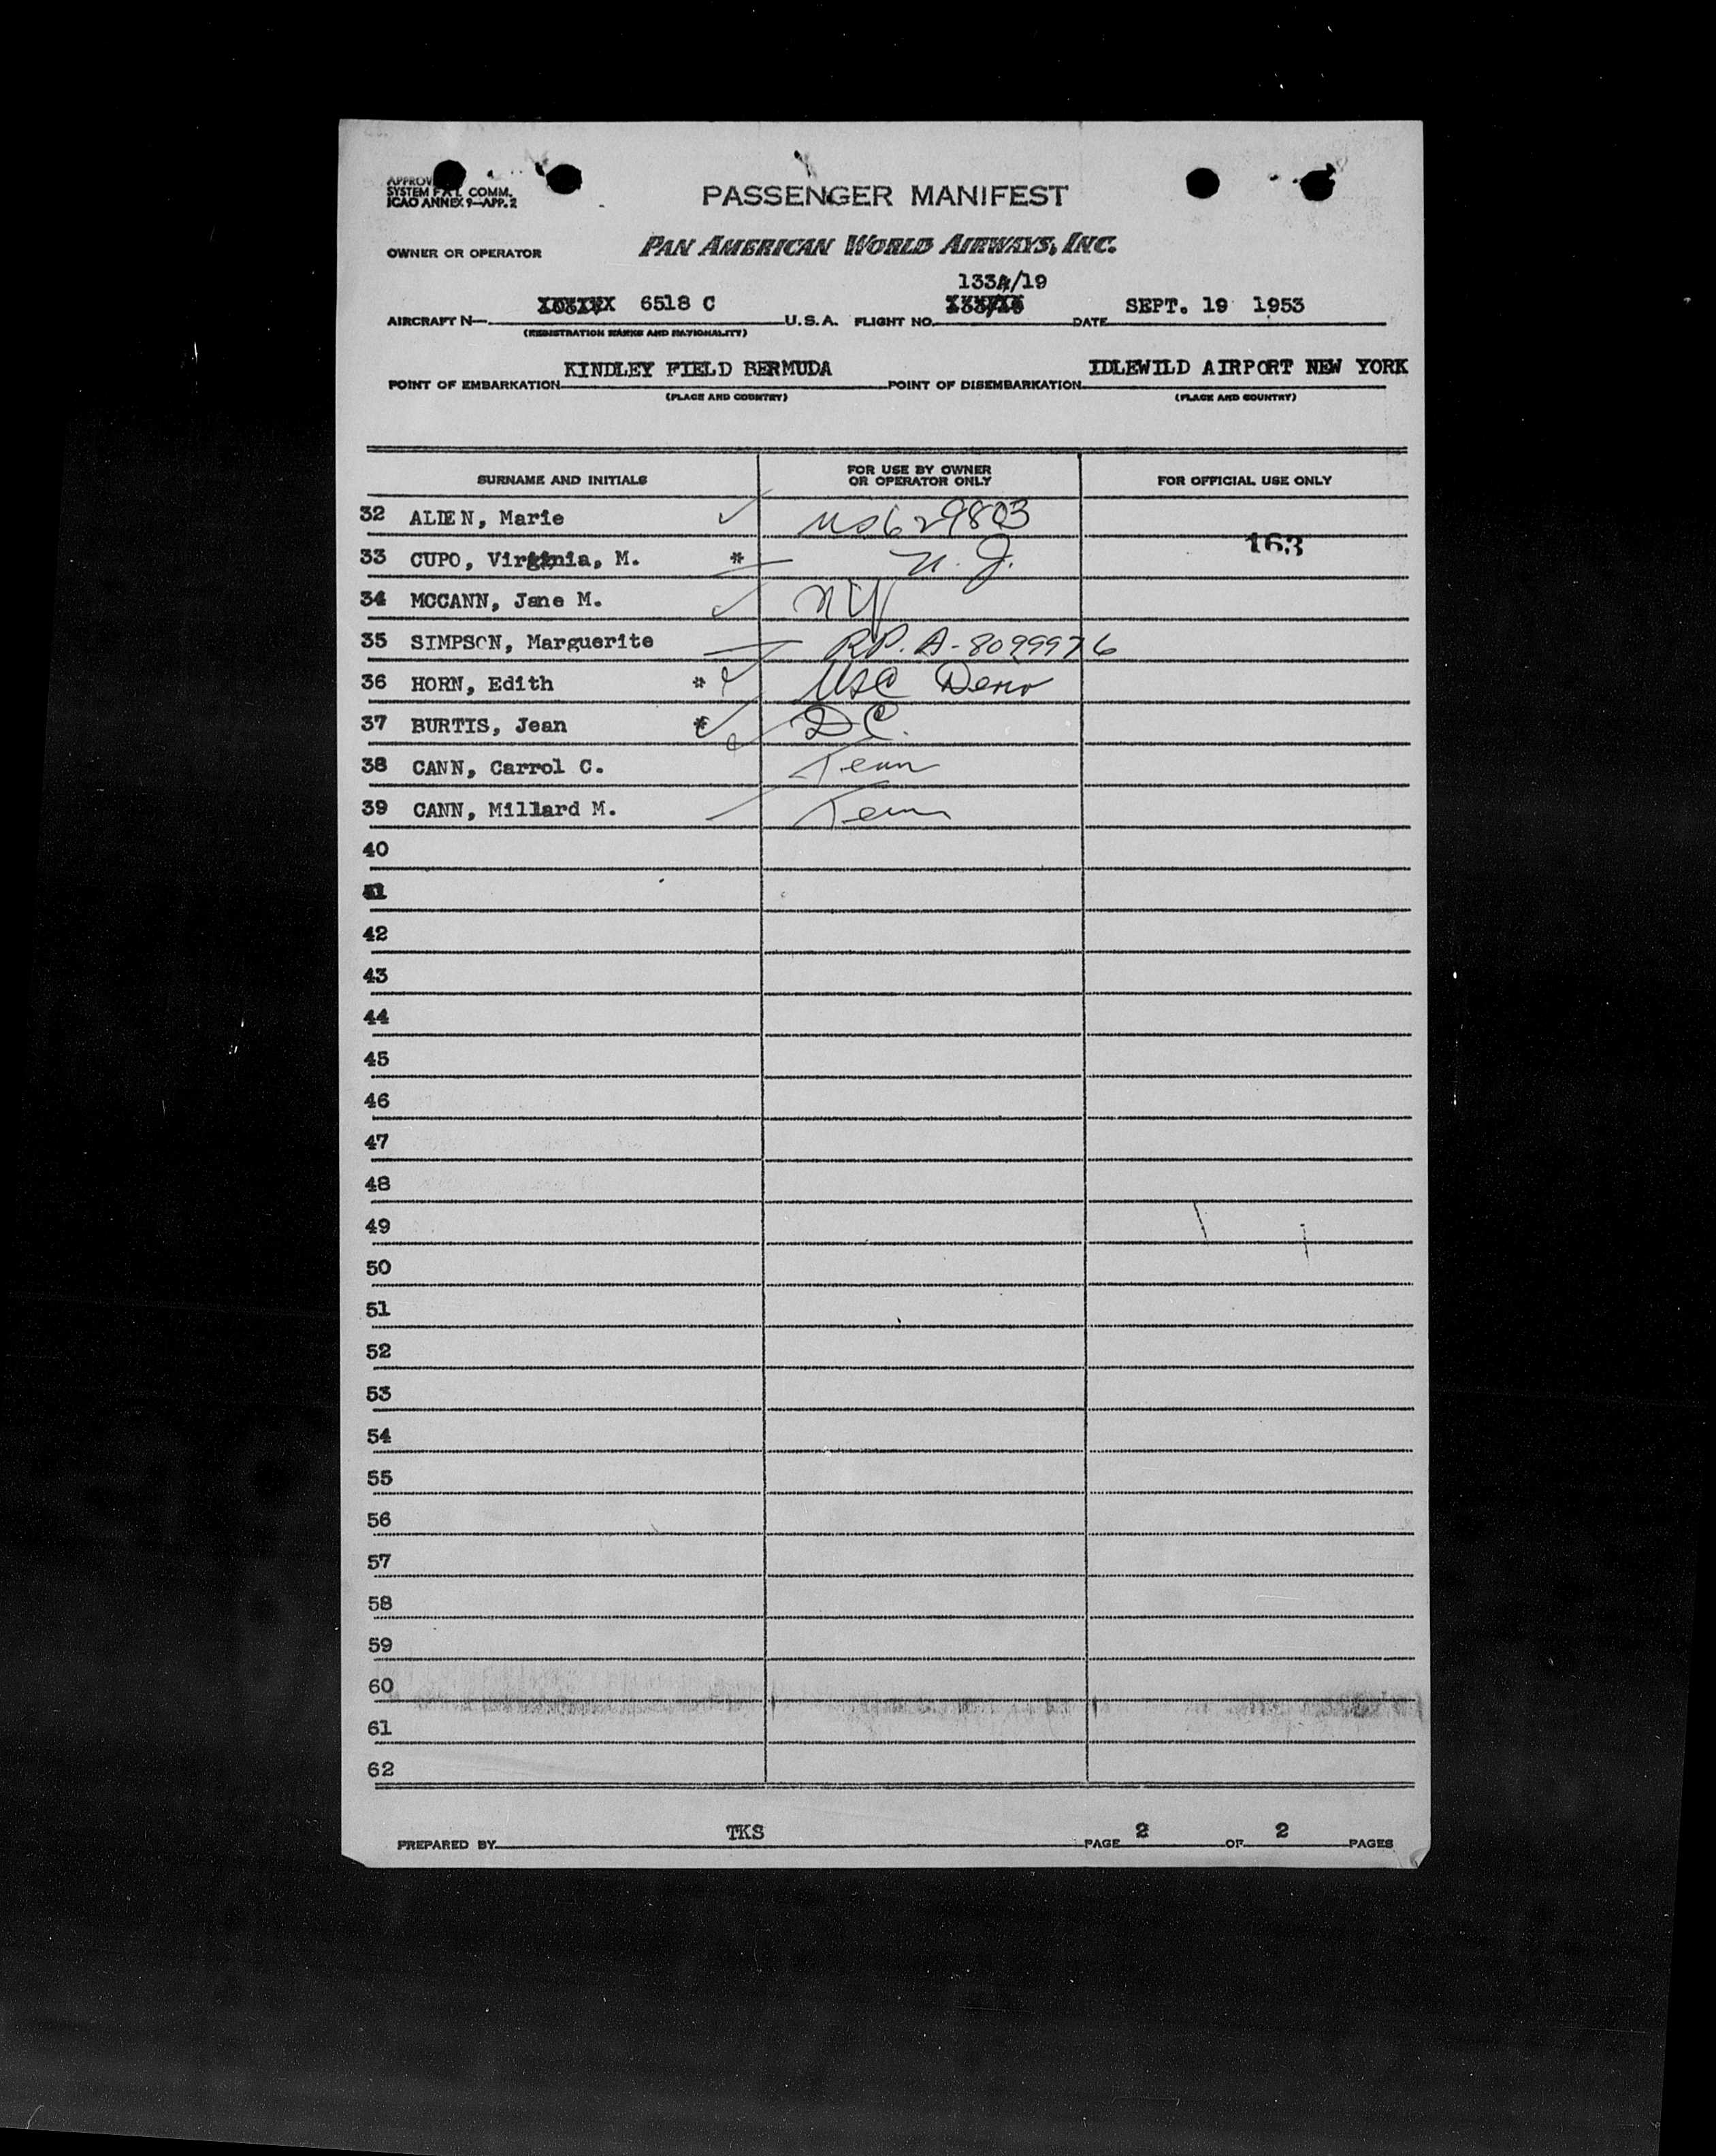 SYSTEM F.A.L. COMM.
ICAO ANNEX 9—APP. 2
PASSENGER MANIFEST
OWNER OR OPERATOR PAN AMERICAN WORLD AIRWAYS, INC.
133A/19
AIRCRAFT N— 6518 C U.S.A. FLIGHT NO. DATE SEPT. 19 1953
(REGISTRATION MARKS AND NATIONALITY)
POINT OF EMBARKATION KINDLEY FIELD BERMUDA POINT OF DISEMBARKATION IDLEWILD AIRPORT NEW YORK
(PLACE AND COUNTRY) (PLACE AND COUNTRY)
SURNAME AND INITIALS FOR USE BY OWNER OR OPERATOR ONLY FOR OFFICIAL USE ONLY
32 ALIEN, Marie ✓ US629803
163
33 CUPO, Virginia, M. * N.J.
34 MCCANN, Jane M. ✓ NY
35 SIMPSON, Marguerite R.P. A-8099976
36 HORN, Edith * USC
37 BURTIS, Jean * DC.
38 CANN, Carrol C. Tenn
39 CANN, Millard M. Tenn
40
41
42
43
44
45
46
47
48
49
50
51
52
53
54
55
56
57
58
59
60
61
62
PREPARED BY TKS PAGE 2 OF 2 PAGES